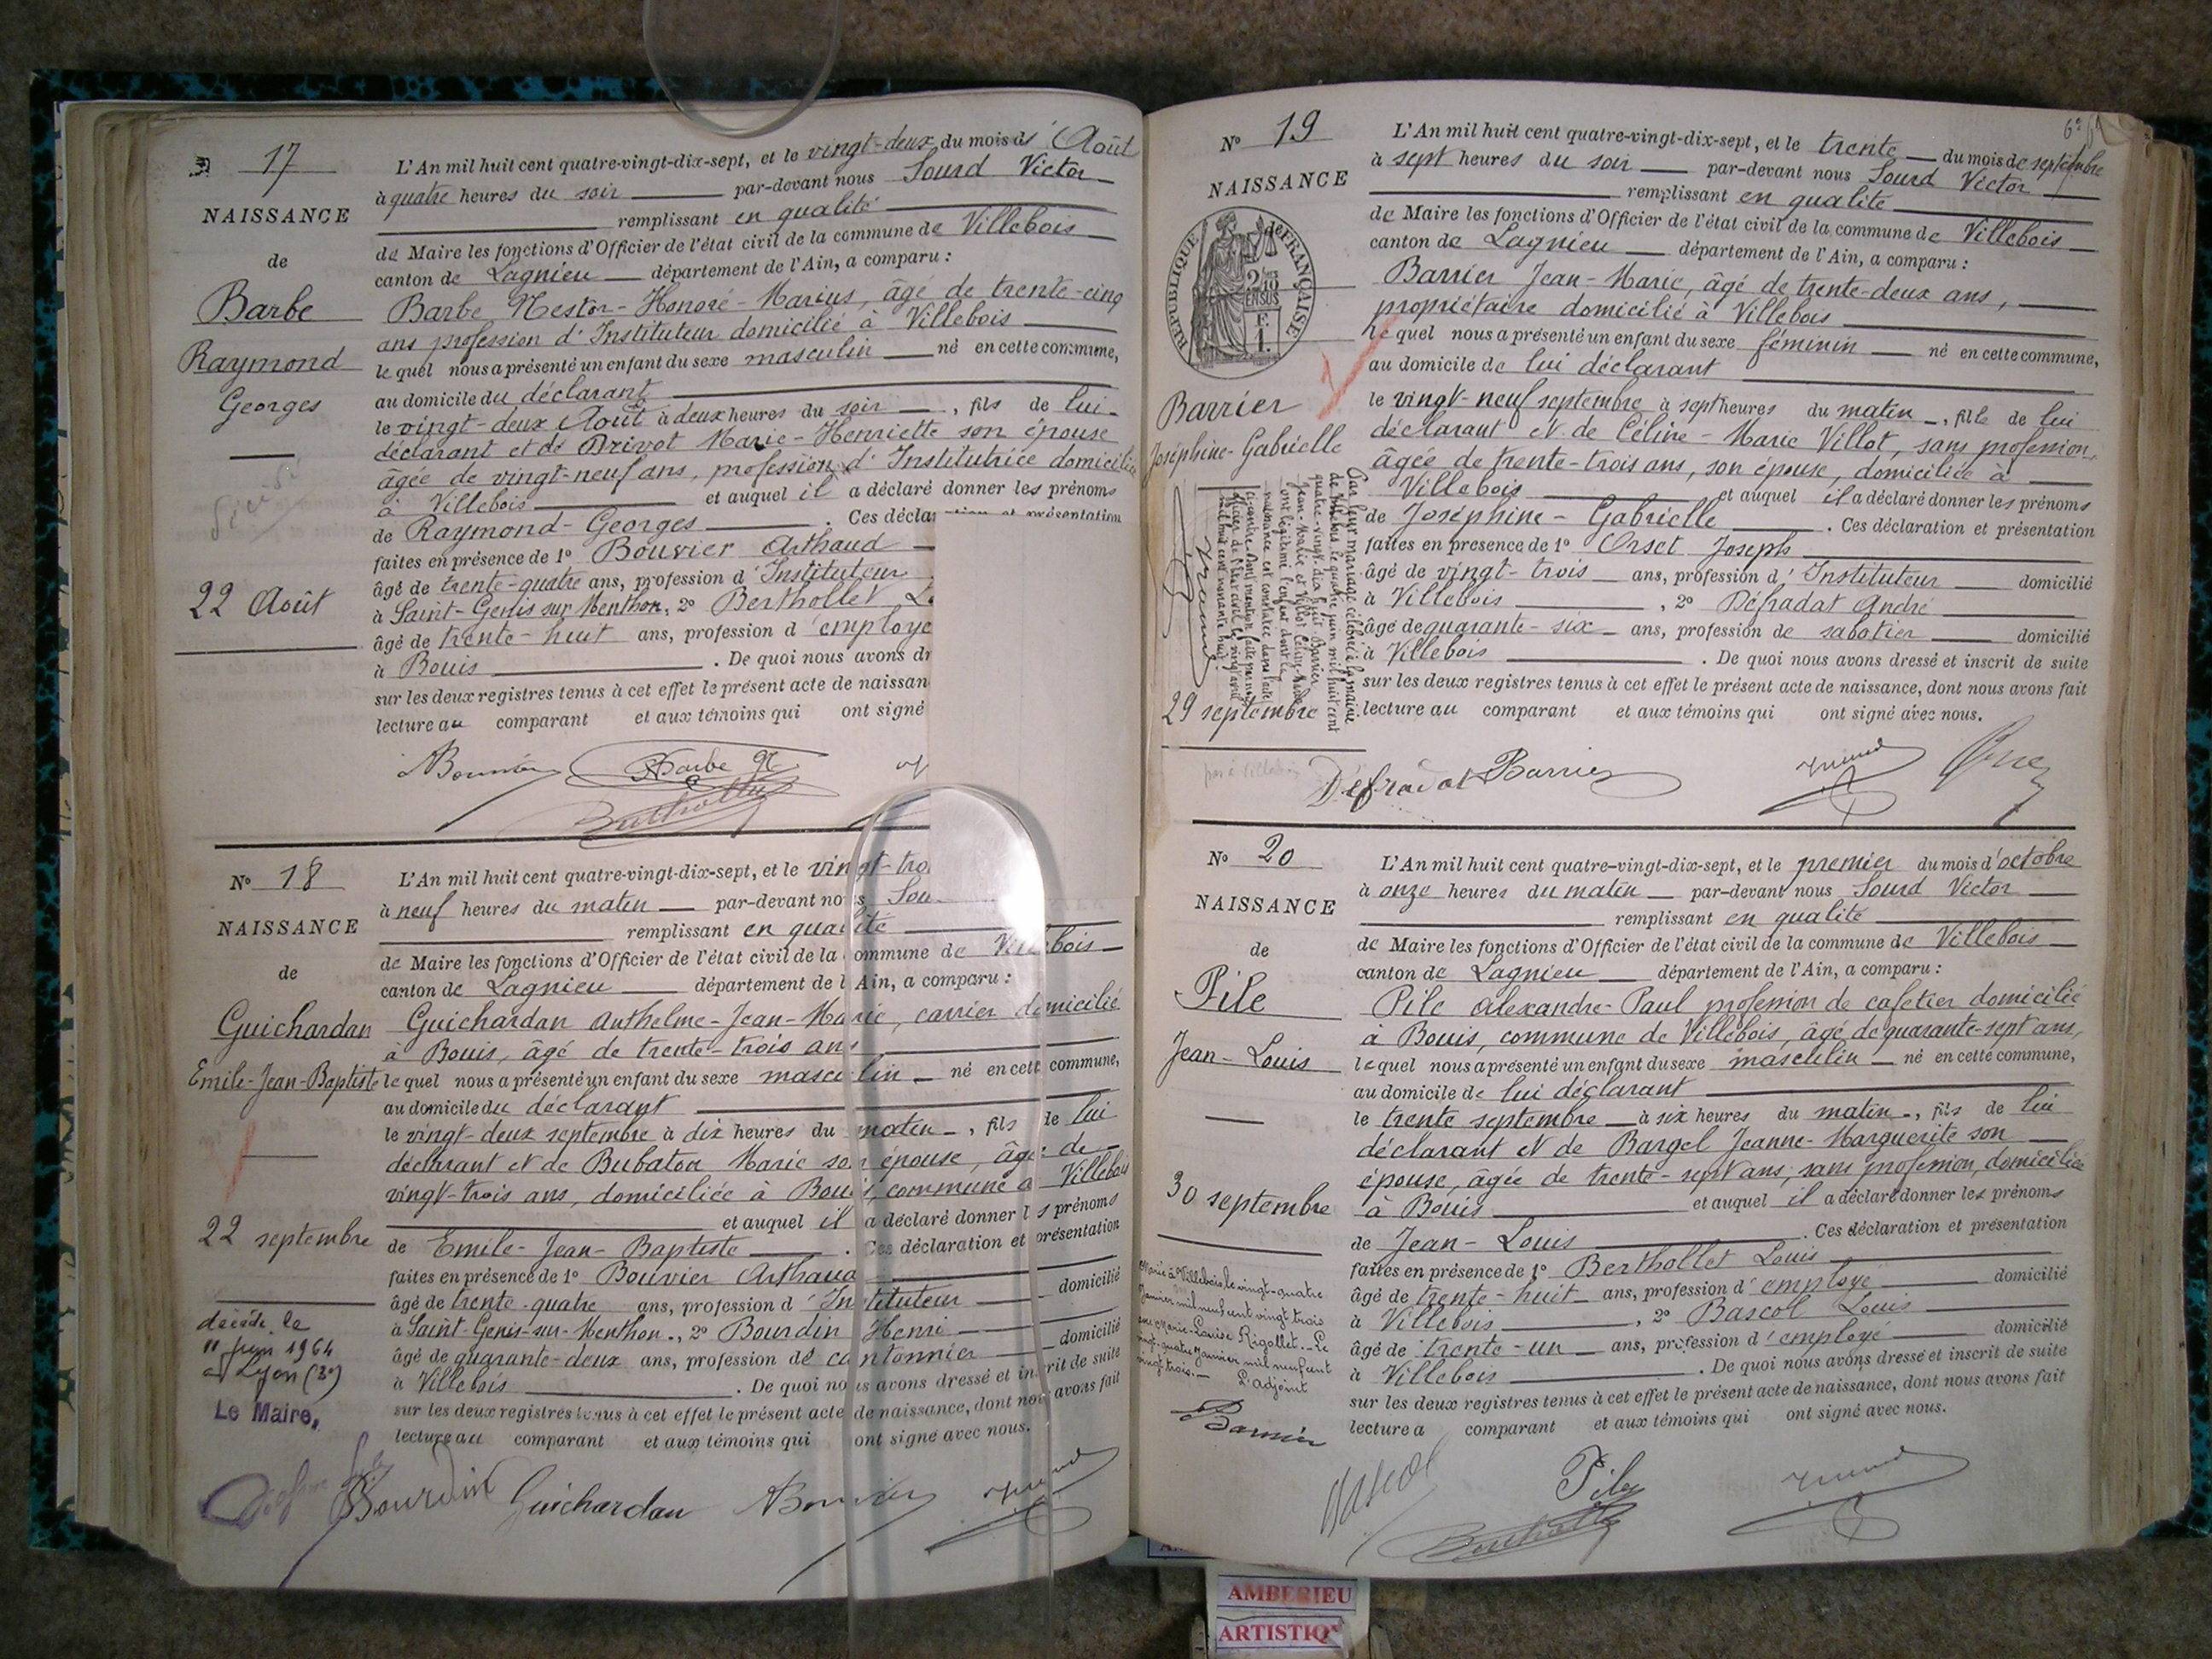 N° 17
NAISSANCE
de
Barbe
Raymond
Georges
22 Août
L'An mil huit cent quatre-vingt-dix-sept, et le vingt-deux du mois d' Août
à quatre heures du soir par-devant nous Sourd Victor
remplissant en qualité
de Maire les fonctions d'Officier de l'état civil de la commune de Villebois
canton de Lagnieu département de l'Ain, a comparu :
Barbe Nestor-Honoré-Marius, âgé de trente-cinq
ans profession d'Instituteur domicilié à Villebois
le quel nous a présenté un enfant du sexe masculin né en cette commune,
au domicile du déclarant
le vingt-deux Août à deux heures du soir , fils de lui
déclarant et de Drivot Marie-Henriette son épouse
âgée de vingt-neuf ans, profession d'Institutrice domiciliée
à Villebois et auquel il a déclaré donner les prénoms
de Raymond-Georges . Ces décla et présentation
faites en présence de 1° Bouvier Arthaud
âgé de trente-quatre ans, profession d'Instituteur
à Saint-Genis sur Menthon, 2° Berthollet L
âgé de trente-huit ans, profession d'employé
à Bouis . De quoi nous avons dr
sur les deux registres tenus à cet effet le présent acte de naissan
lecture au comparant et aux témoins qui ont signé
ABouvier Barbe
Berthollet
N° 18
NAISSANCE
de
Guichardan
Emile-Jean-Baptiste
22 septembre
décédé le
11 juin 1964
à Lyon (3e)
Le Maire,
L'An mil huit cent quatre-vingt-dix-sept, et le vingt-tro
à neuf heures du matin par-devant nous Sou
remplissant en qualité
de Maire les fonctions d'Officier de l'état civil de la commune de Villebois
canton de Lagnieu département de l'Ain, a comparu :
Guichardan Anthelme-Jean-Marie, carrier domicilié
à Bouis, âgé de trente-trois ans
le quel nous a présenté un enfant du sexe masculin né en cette commune,
au domicile du déclarant
le vingt-deux septembre à dix heures du matin , fils de lui
déclarant et de Bubaton Marie son épouse, âgée de
vingt-trois ans, domiciliée à Bouis, commune de Villebois
et auquel il a déclaré donner les prénoms
de Emile-Jean-Baptiste . Ces déclaration et présentation
faites en présence de 1° Bouvier Arthaud
âgé de trente-quatre ans, profession d'Instituteur domicilié
à Saint-Genis-sur-Menthon, 2° Bourdin Henri
âgé de quarante-deux ans, profession de cantonnier domicilié
à Villebois . De quoi nous avons dressé et inscrit de suite
sur les deux registres tenus à cet effet le présent acte de naissance, dont nous avons fait
lecture au comparant et aux témoins qui ont signé avec nous.
Bourdin Guichardan ABouvier
N° 19
NAISSANCE
REPUBLIQUE FRANÇAISE
Barrier
Joséphine-Gabrielle
Par leur mariage célébré à la mairie
de Villebois le quatre juin mil huit cent
quatre-vingt-dix-huit Barrier
Jean-Marie et Villot Céline-Marie
ont légitimé l'enfant dont la
naissance est constatée dans l'acte
ci-contre. Dont mention faite par nous
officier de l'état civil le vingt avril
29 septembre
L'An mil huit cent quatre-vingt-dix-sept, et le trente du mois de septembre
à sept heures du soir par-devant nous Sourd Victor
remplissant en qualité
de Maire les fonctions d'Officier de l'état civil de la commune de Villebois
canton de Lagnieu département de l'Ain, a comparu :
Barrier Jean-Marie, âgé de trente-deux ans,
propriétaire domicilié à Villebois
le quel nous a présenté un enfant du sexe féminin né en cette commune,
au domicile de lui déclarant
le vingt-neuf septembre à sept heures du matin , fille de lui
déclarant et de Céline-Marie Villot, sans profession,
âgée de trente-trois ans, son épouse, domiciliée à
Villebois et auquel il a déclaré donner les prénoms
de Joséphine-Gabrielle . Ces déclaration et présentation
faites en présence de 1° Orset Joseph
âgé de vingt-trois ans, profession d'Instituteur domicilié
à Villebois , 2° Défradat André
âgé de quarante-six ans, profession de sabotier domicilié
à Villebois . De quoi nous avons dressé et inscrit de suite
sur les deux registres tenus à cet effet le présent acte de naissance, dont nous avons fait
lecture au comparant et aux témoins qui ont signé avec nous.
Défradat Barrier
N° 20
NAISSANCE
de
Pile
Jean-Louis
30 septembre
Marié à Villebois le vingt-quatre
Janvier mil neuf cent vingt trois
avec Marie-Louise Rigollet. Le
vingt-quatre Janvier mil neuf cent
vingt trois.
L'adjoint
L'An mil huit cent quatre-vingt-dix-sept, et le premier du mois d'octobre
à onze heures du matin par-devant nous Sourd Victor
remplissant en qualité
de Maire les fonctions d'Officier de l'état civil de la commune de Villebois
canton de Lagnieu département de l'Ain, a comparu :
Pile Alexandre-Paul profession de cafetier domicilié
à Bouis, commune de Villebois, âgé de quarante-sept ans,
le quel nous a présenté un enfant du sexe masculin né en cette commune,
au domicile de lui déclarant
le trente septembre à six heures du matin , fils de lui
déclarant et de Bargel Jeanne-Marguerite son
épouse, âgée de trente-sept ans, sans profession, domiciliée
à Bouis et auquel il a déclaré donner les prénoms
de Jean-Louis . Ces déclaration et présentation
faites en présence de 1° Berthollet Louis
âgé de trente-huit ans, profession d'employé domicilié
à Villebois , 2° Bascol Louis
âgé de trente-un ans, profession d'employé domicilié
à Villebois . De quoi nous avons dressé et inscrit de suite
sur les deux registres tenus à cet effet le présent acte de naissance, dont nous avons fait
lecture a comparant et aux témoins qui ont signé avec nous.
Bascol Pile
Berthollet
AMBERIEU
ARTISTIQ